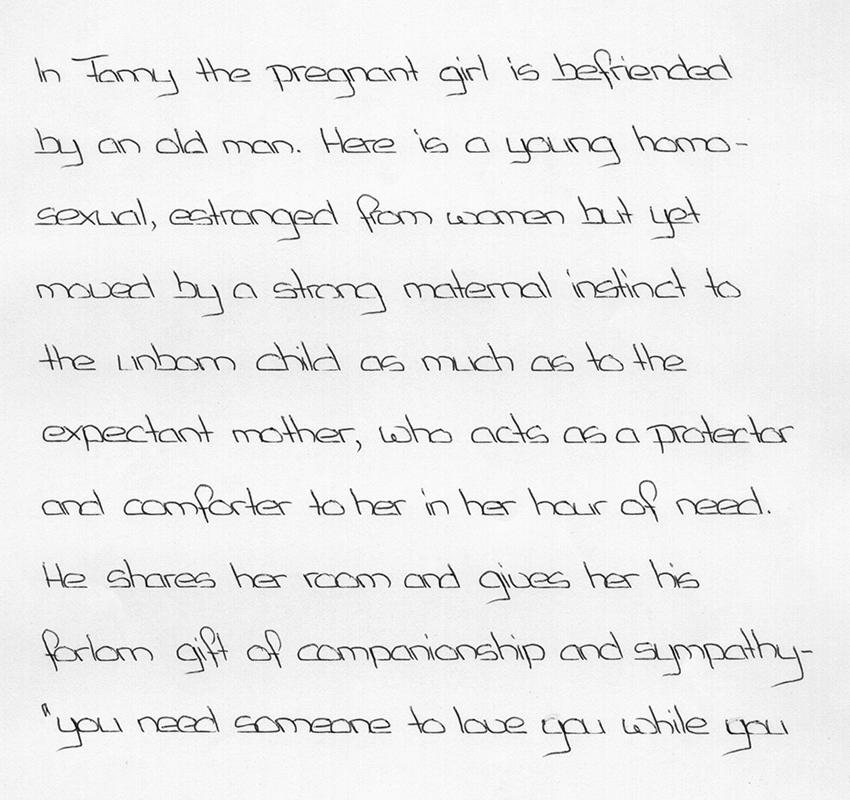 In Fanny the pregnant girl is befriended
by an old man. Here is a young homo-
sexual, estranged from women but yet
moved by a strong maternal instinct to
the unborn child as much as to the
expectant mother, who acts as a protector
and comforter to her in her hour of need.
He shares her room and gives her his
forlorn gift of companionship and sympathy-
"you need someone to love you while you